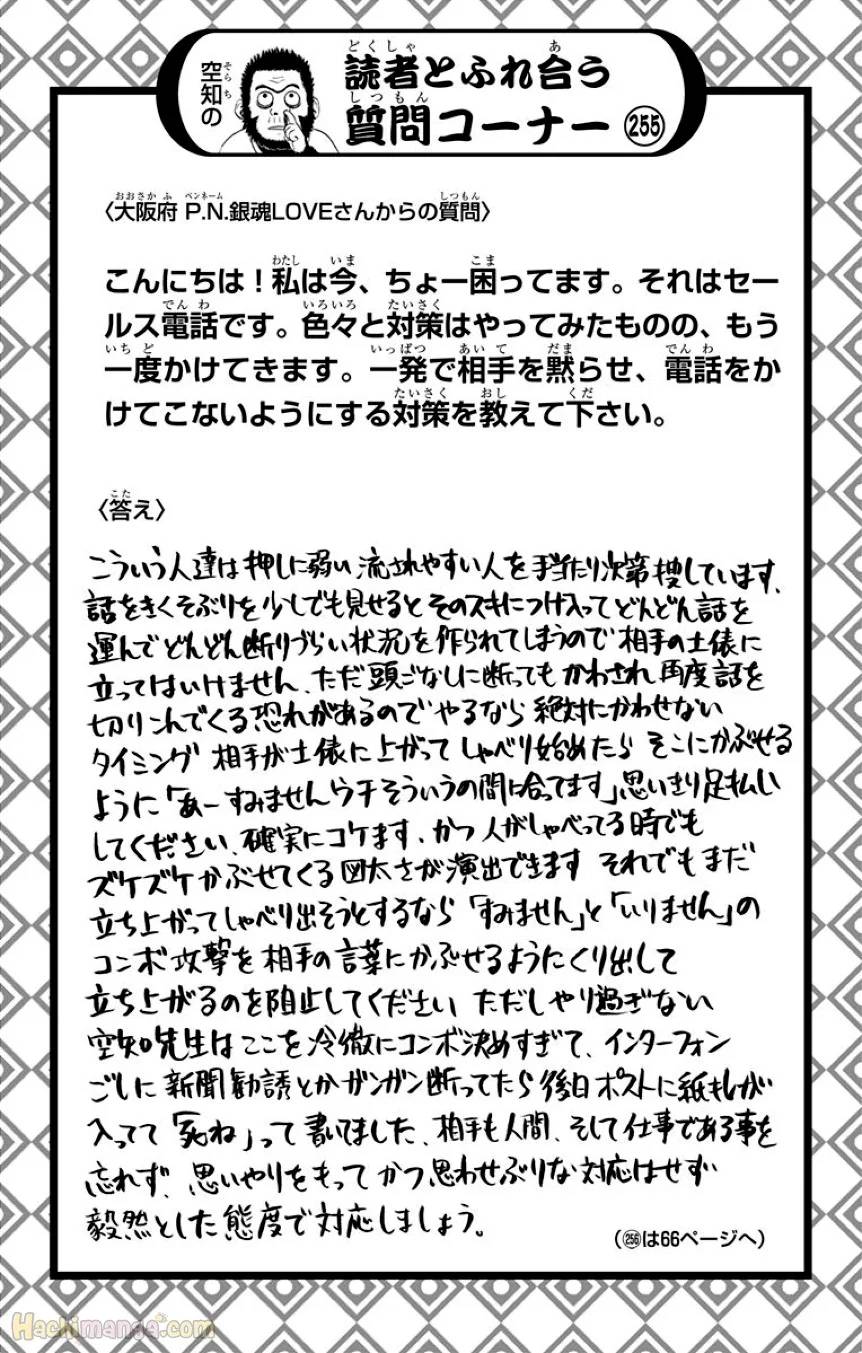 空知の
読者とふれ合う
質問コーナー 255
〈大阪府 P.N.銀魂LOVEさんからの質問〉
こんにちは！私は今、ちょー困ってます。それはセー
ルス電話です。色々と対策はやってみたものの、もう
一度かけてきます。一発で相手を黙らせ、電話をか
けてこないようにする対策を教えて下さい。
〈答え〉
こういう人達は押しに弱い流されやすい人を手当たり次第捜しています、
話をきくそぶりを少しでも見せるとそのスキにつけ入ってどんどん話を
運んでどんどん断りづらい状況を作られてしまうので相手の土俵に
立ってはいけません、ただ頭ごなしに断ってもかわされ再度話を
切りこんでくる恐れがあるのでやるなら絶対にかわせない
タイミング 相手が土俵に上がってしゃべり始めたら そこにかぶせる
ように「あーすみませんウチそういうの間に合ってます」思いきり足払いし
してください、確実にコケます、かつ人がしゃべってる時でも
ズケズケかぶせてくる図太さが演出できます それでもまだ
立ち上がってしゃべり出そうとするなら「すみません」と「いりません」の
コンボ攻撃を相手の言葉にかぶせるようにくり出して
立ち上がるのを阻止してください ただしやり過ぎない
空知先生はここを冷徹にコンボ決めすぎて、インターフォン
ごしに新聞勧誘とかガンガン断ってたら後日ポストに紙キレが
入ってて「死ね」って書いてました、相手も人間、そして仕事である事を
忘れず、思いやりをもって かつ思わせぶりな対応はせず
毅然とした態度で対応しましょう。
（256は66ページへ）
Hachimanga.com